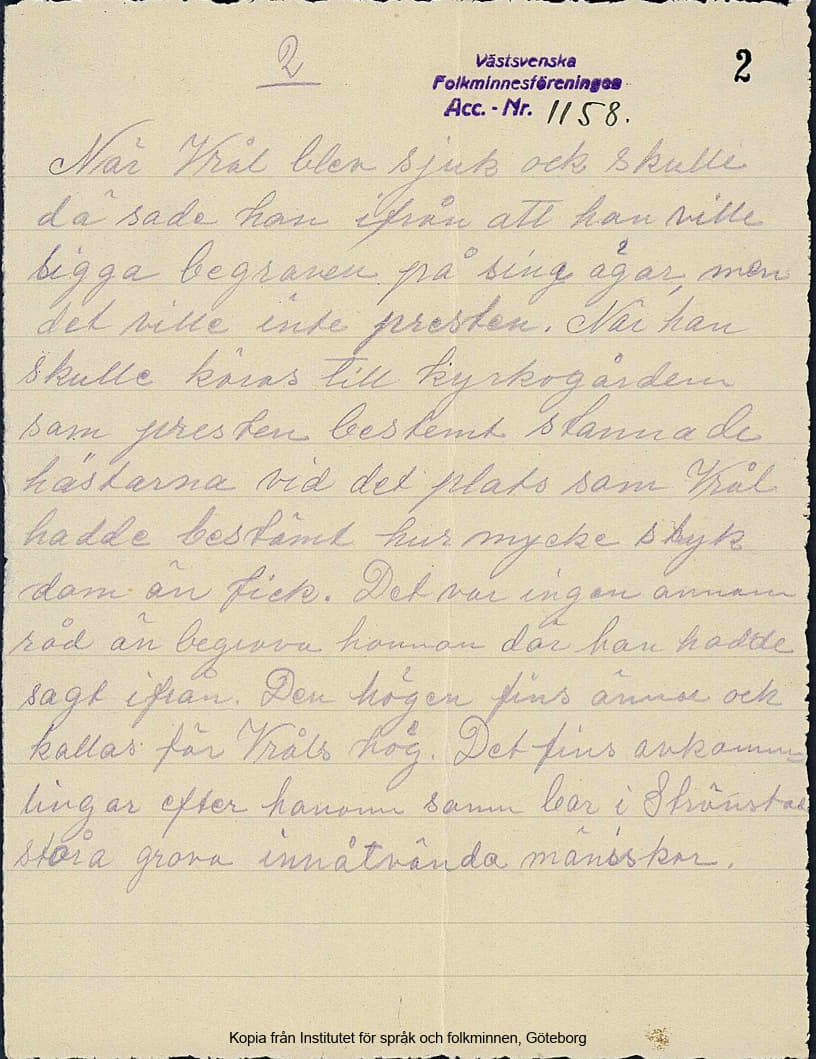 2
Västsvenska
Folkminnesföreningen
Acc. - Nr. 1158.
2
När Vrål blev sjuk ock skulle
dä sade han ifrån att han ville
ligga begraven på sine ågar, men
det ville inte presten. När han
skulle köras till kyrkogården
som presten bestemt stannade
hästarna vid det plats som Vrål
hadde bestämt hur mycke stryk
dom än fick. Det var ingen annan
råd än begrava honnon där han hadde
sagt ifrån. Den högen fins ännu ock
kallas för Vråls hög. Det fins avkomm
lingar efter honom som bor i Strömstad
stora grova innåtvända mänskor.
Kopia från Institutet för språk och folkminnen, Göteborg